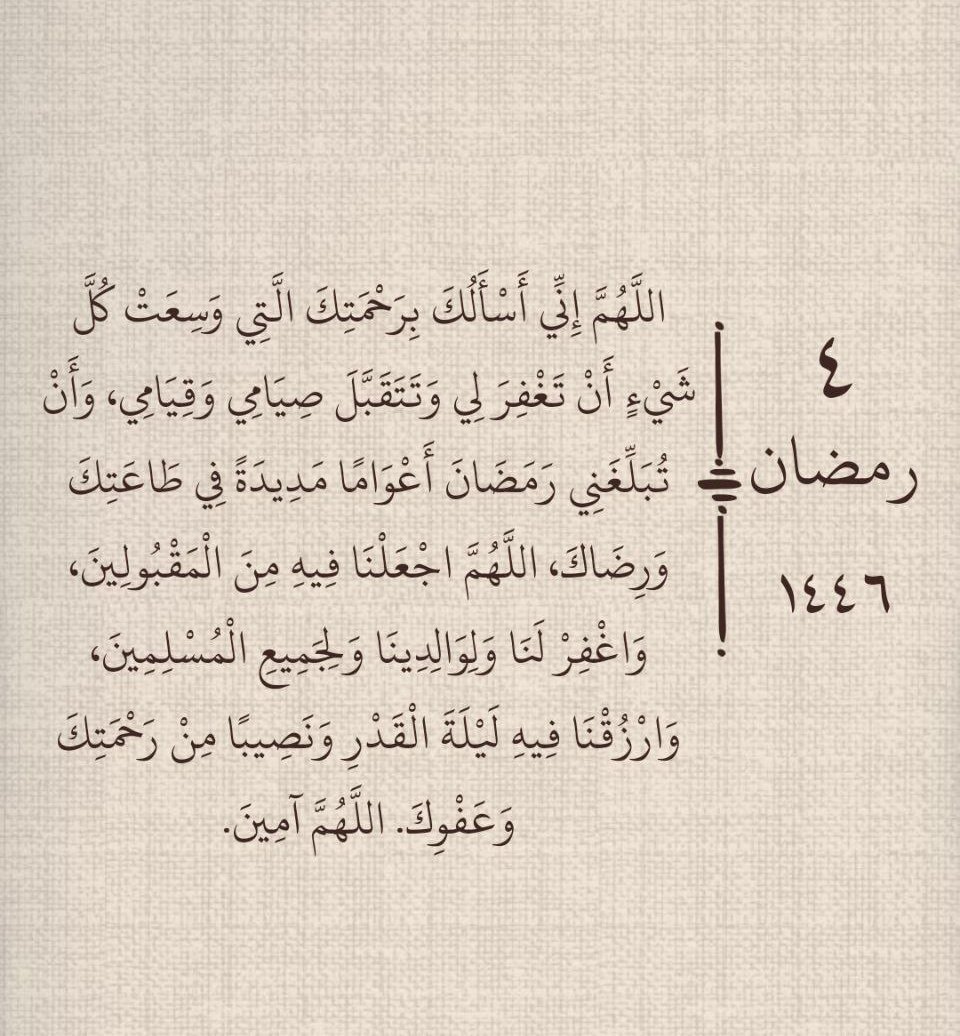 ٤
رمضان
١٤٤٦
اللَّهُمَّ إِنِّي أَسْأَلُكَ بِرَحْمَتِكَ الَّتِي وَسِعَتْ كُلَّ
شَيْءٍ أَنْ تَغْفِرَ لِي وَتَتَقَبَّلَ صِيَامِي وَقِيَامِي، وَأَنْ
تُبَلِّغَنِي رَمَضَانَ أَعْوَامًا مَدِيدَةً فِي طَاعَتِكَ
وَرِضَاكَ، اللَّهُمَّ اجْعَلْنَا فِيهِ مِنَ الْمَقْبُولِينَ،
وَاغْفِرْ لَنَا وَلِوَالِدِينَا وَلِجَمِيعِ الْمُسْلِمِينَ،
وَارْزُقْنَا فِيهِ لَيْلَةَ الْقَدْرِ وَنَصِيبًا مِنْ رَحْمَتِكَ
وَعَفْوِكَ. اللَّهُمَّ آمِينَ.